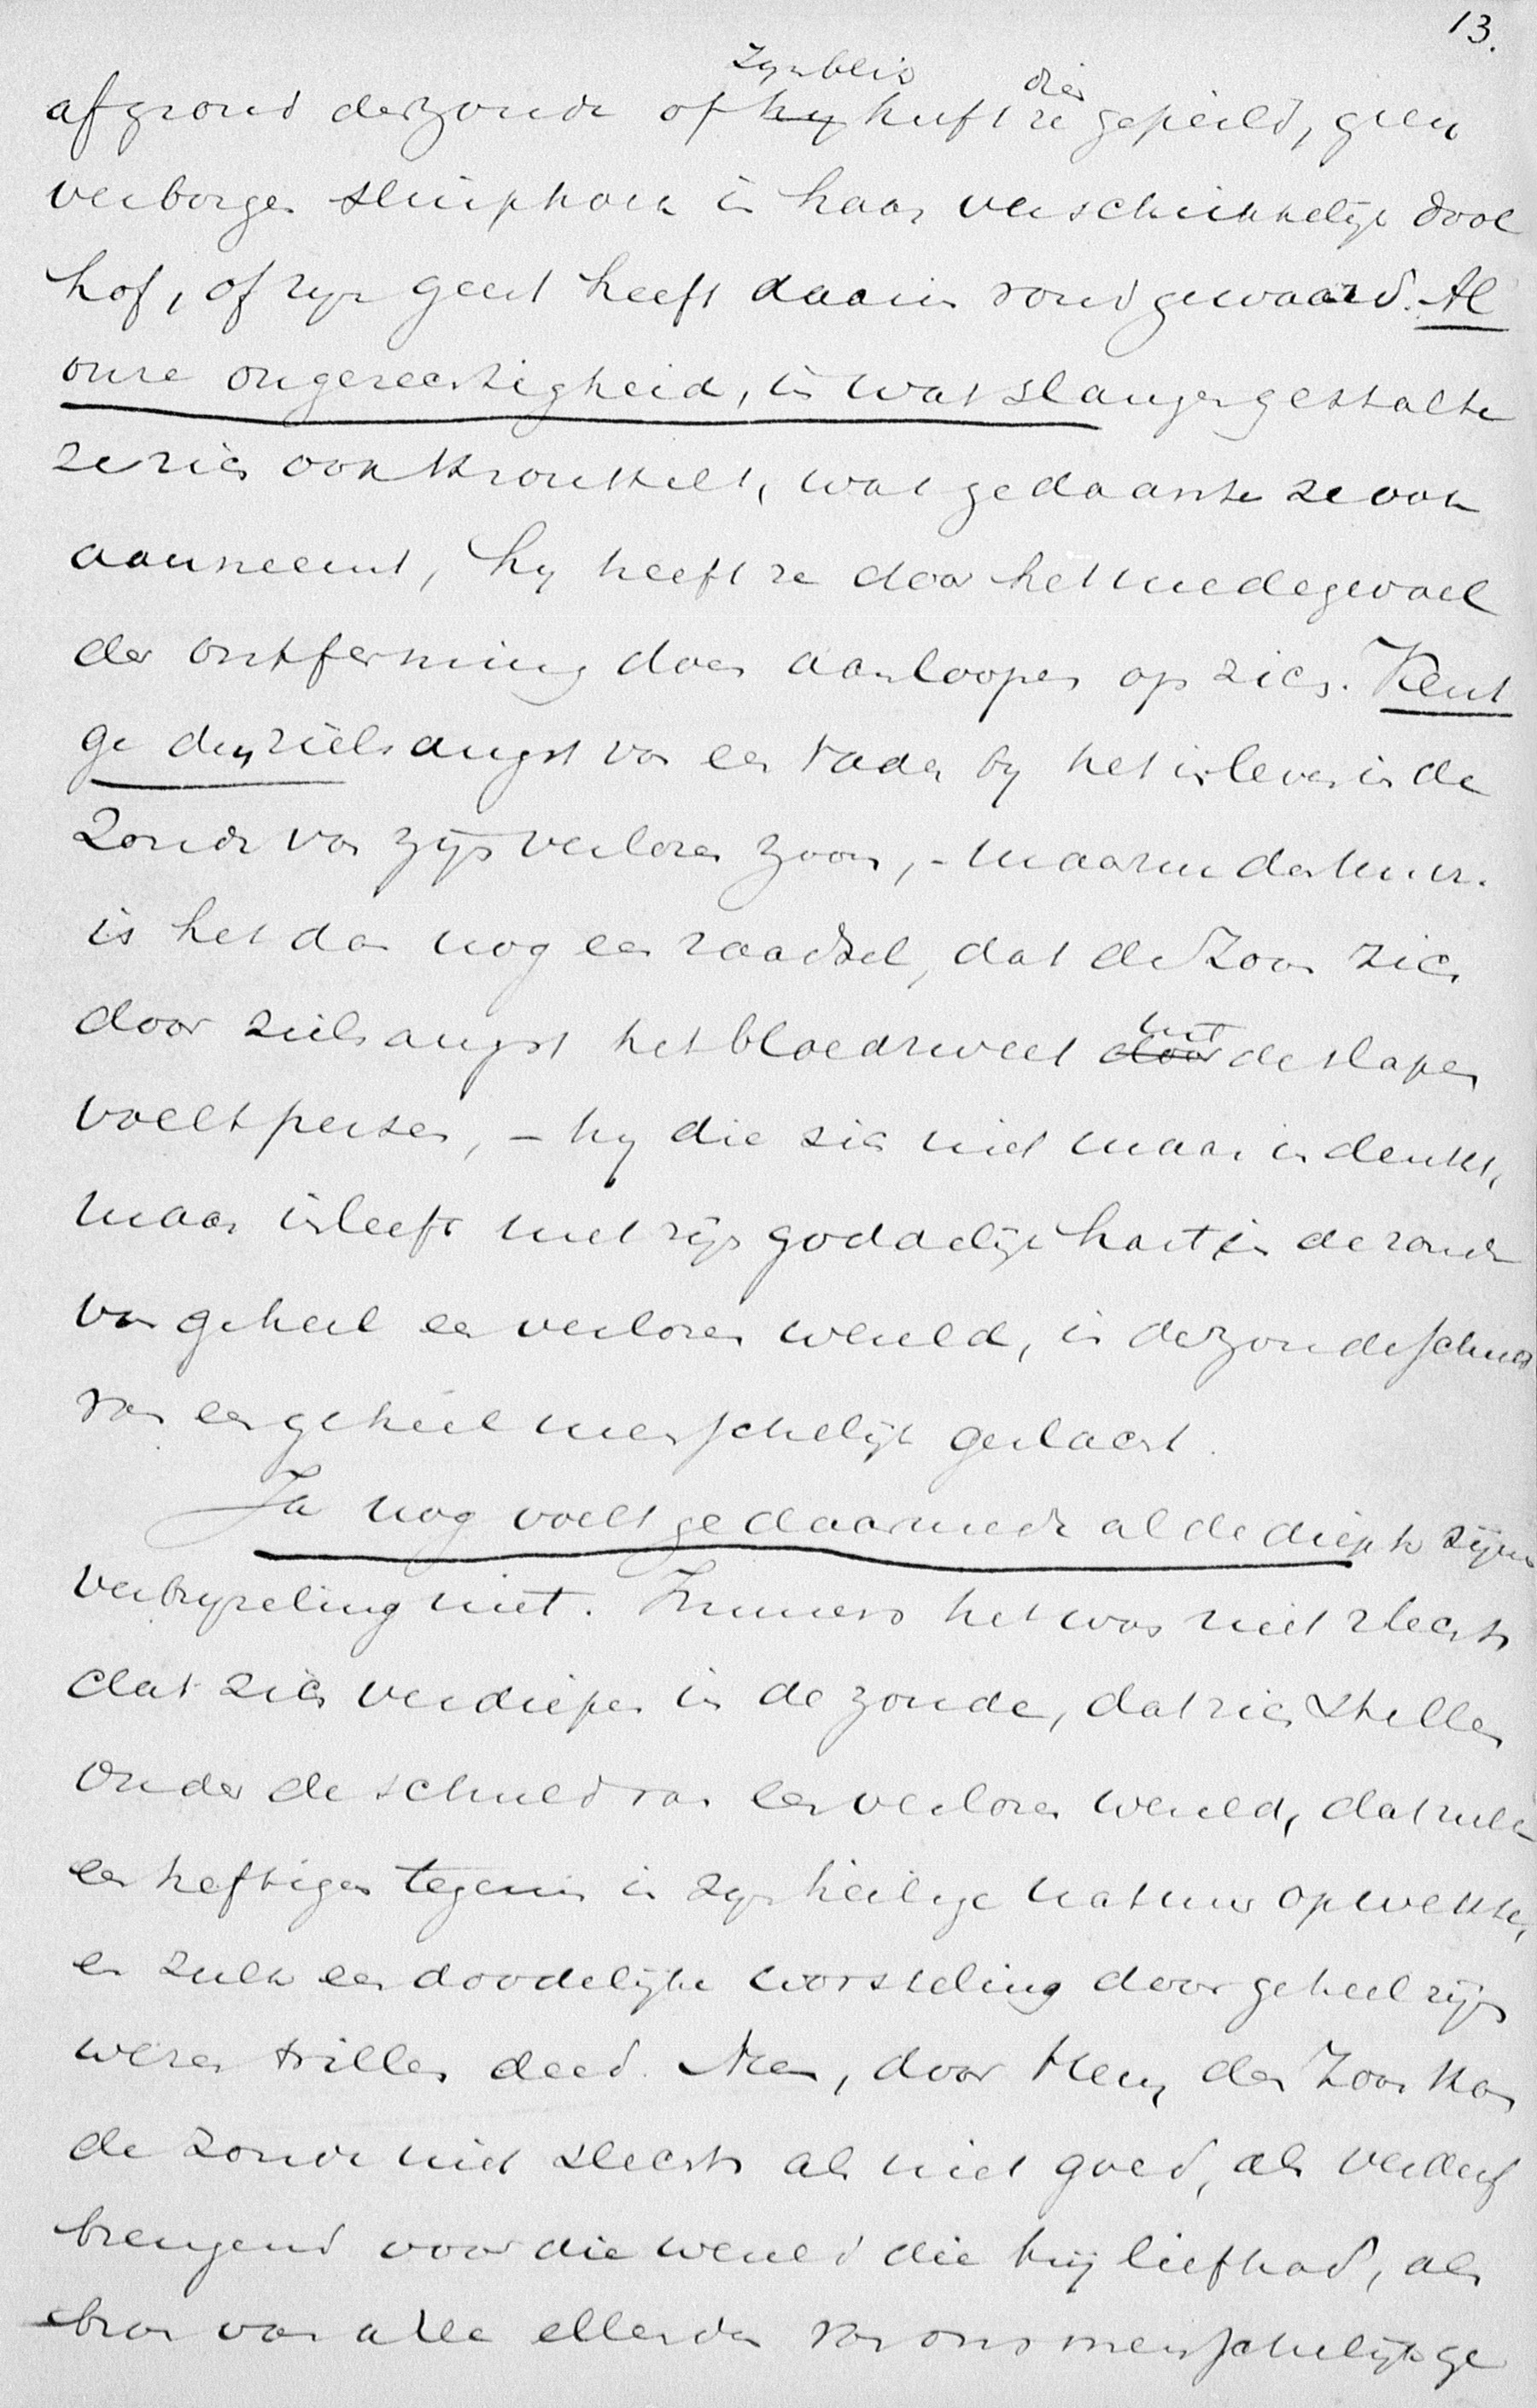 13.
zyn blik die
afgrond der zonde of hy heeft ze gepeild, geen
verborgen sluiphoek in haar verschrikkelijk dool
hof, of zyn geest heeft daarin rondgewaard. Al
onze ongerechtigheid, in wat slangengestalte
ze zich ook kronkelt, wat gedaante ze ook
aanneemt, hy heeft ze door het medegevoel
der ontferming doen aanloopen op zich. Kent
ge den zielsangst van een vader by het inleven in de
zonde van zijn verloren zoon, -
is het dan nog een raadsel, dat de Zoon zich
door zielsangst het bloedzweet door de slapen
uit
voelt persen, - hy die zich niet maar indenkt,
maar inleeft met zijn goddelijk hart in de zonde
van geheel een verloren wereld, in de zondeschuld
van een geheel menschelijk geslacht.
Ja nog voelt ge daarmede al de diepte zijner
verbryzeling niet. Immers het was niet slechts
dat zich verdiepen in de zonde, dat zich stellen
onder de schuld van een verloren wereld, dat zulk
een heftigen tegenin in zyn heilige natuur opwekte,
en zulk een doodelijke worsteling door geheel zijn
wezen trillen deed. Neen, door Hem, den Zoon kon
de zonde niet slechts als niet goed, als verderf
brengend voor die wereld die hij liefhad, als
bron van alle ellenden van ons menschelijk ge